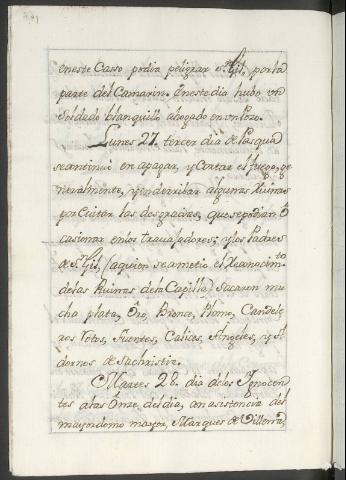 eneste Casso podia peligrar S.n Gil, por la
parte del Camarin. Eneste dia hubo vn
Soldado blanquillo ahogado en vn Pozo.
Lunes 27. tercer dia de Pasqua
se continuó en apagar, y Cortar el fuego, ge
neralmente, y en derribar algunas Ruinas
por Euitar las desgracias, que se podian ô
casionar en los trauajadores; y los Padres
de S.n Gil, (aquien se ametio el Reconocim.to
de las Ruinas de la Capilla) Sacaron mu
cha plata, Oro, Bronce, Plomo, Candele
ros Votos, Fuentes, Calices, Angeles, y A
dornos de Sachristia.
Martes 28. dia delos Ynocen
tes alas Onze del dia, con asistencia del
mayordomo mayor, Marques de Villena,